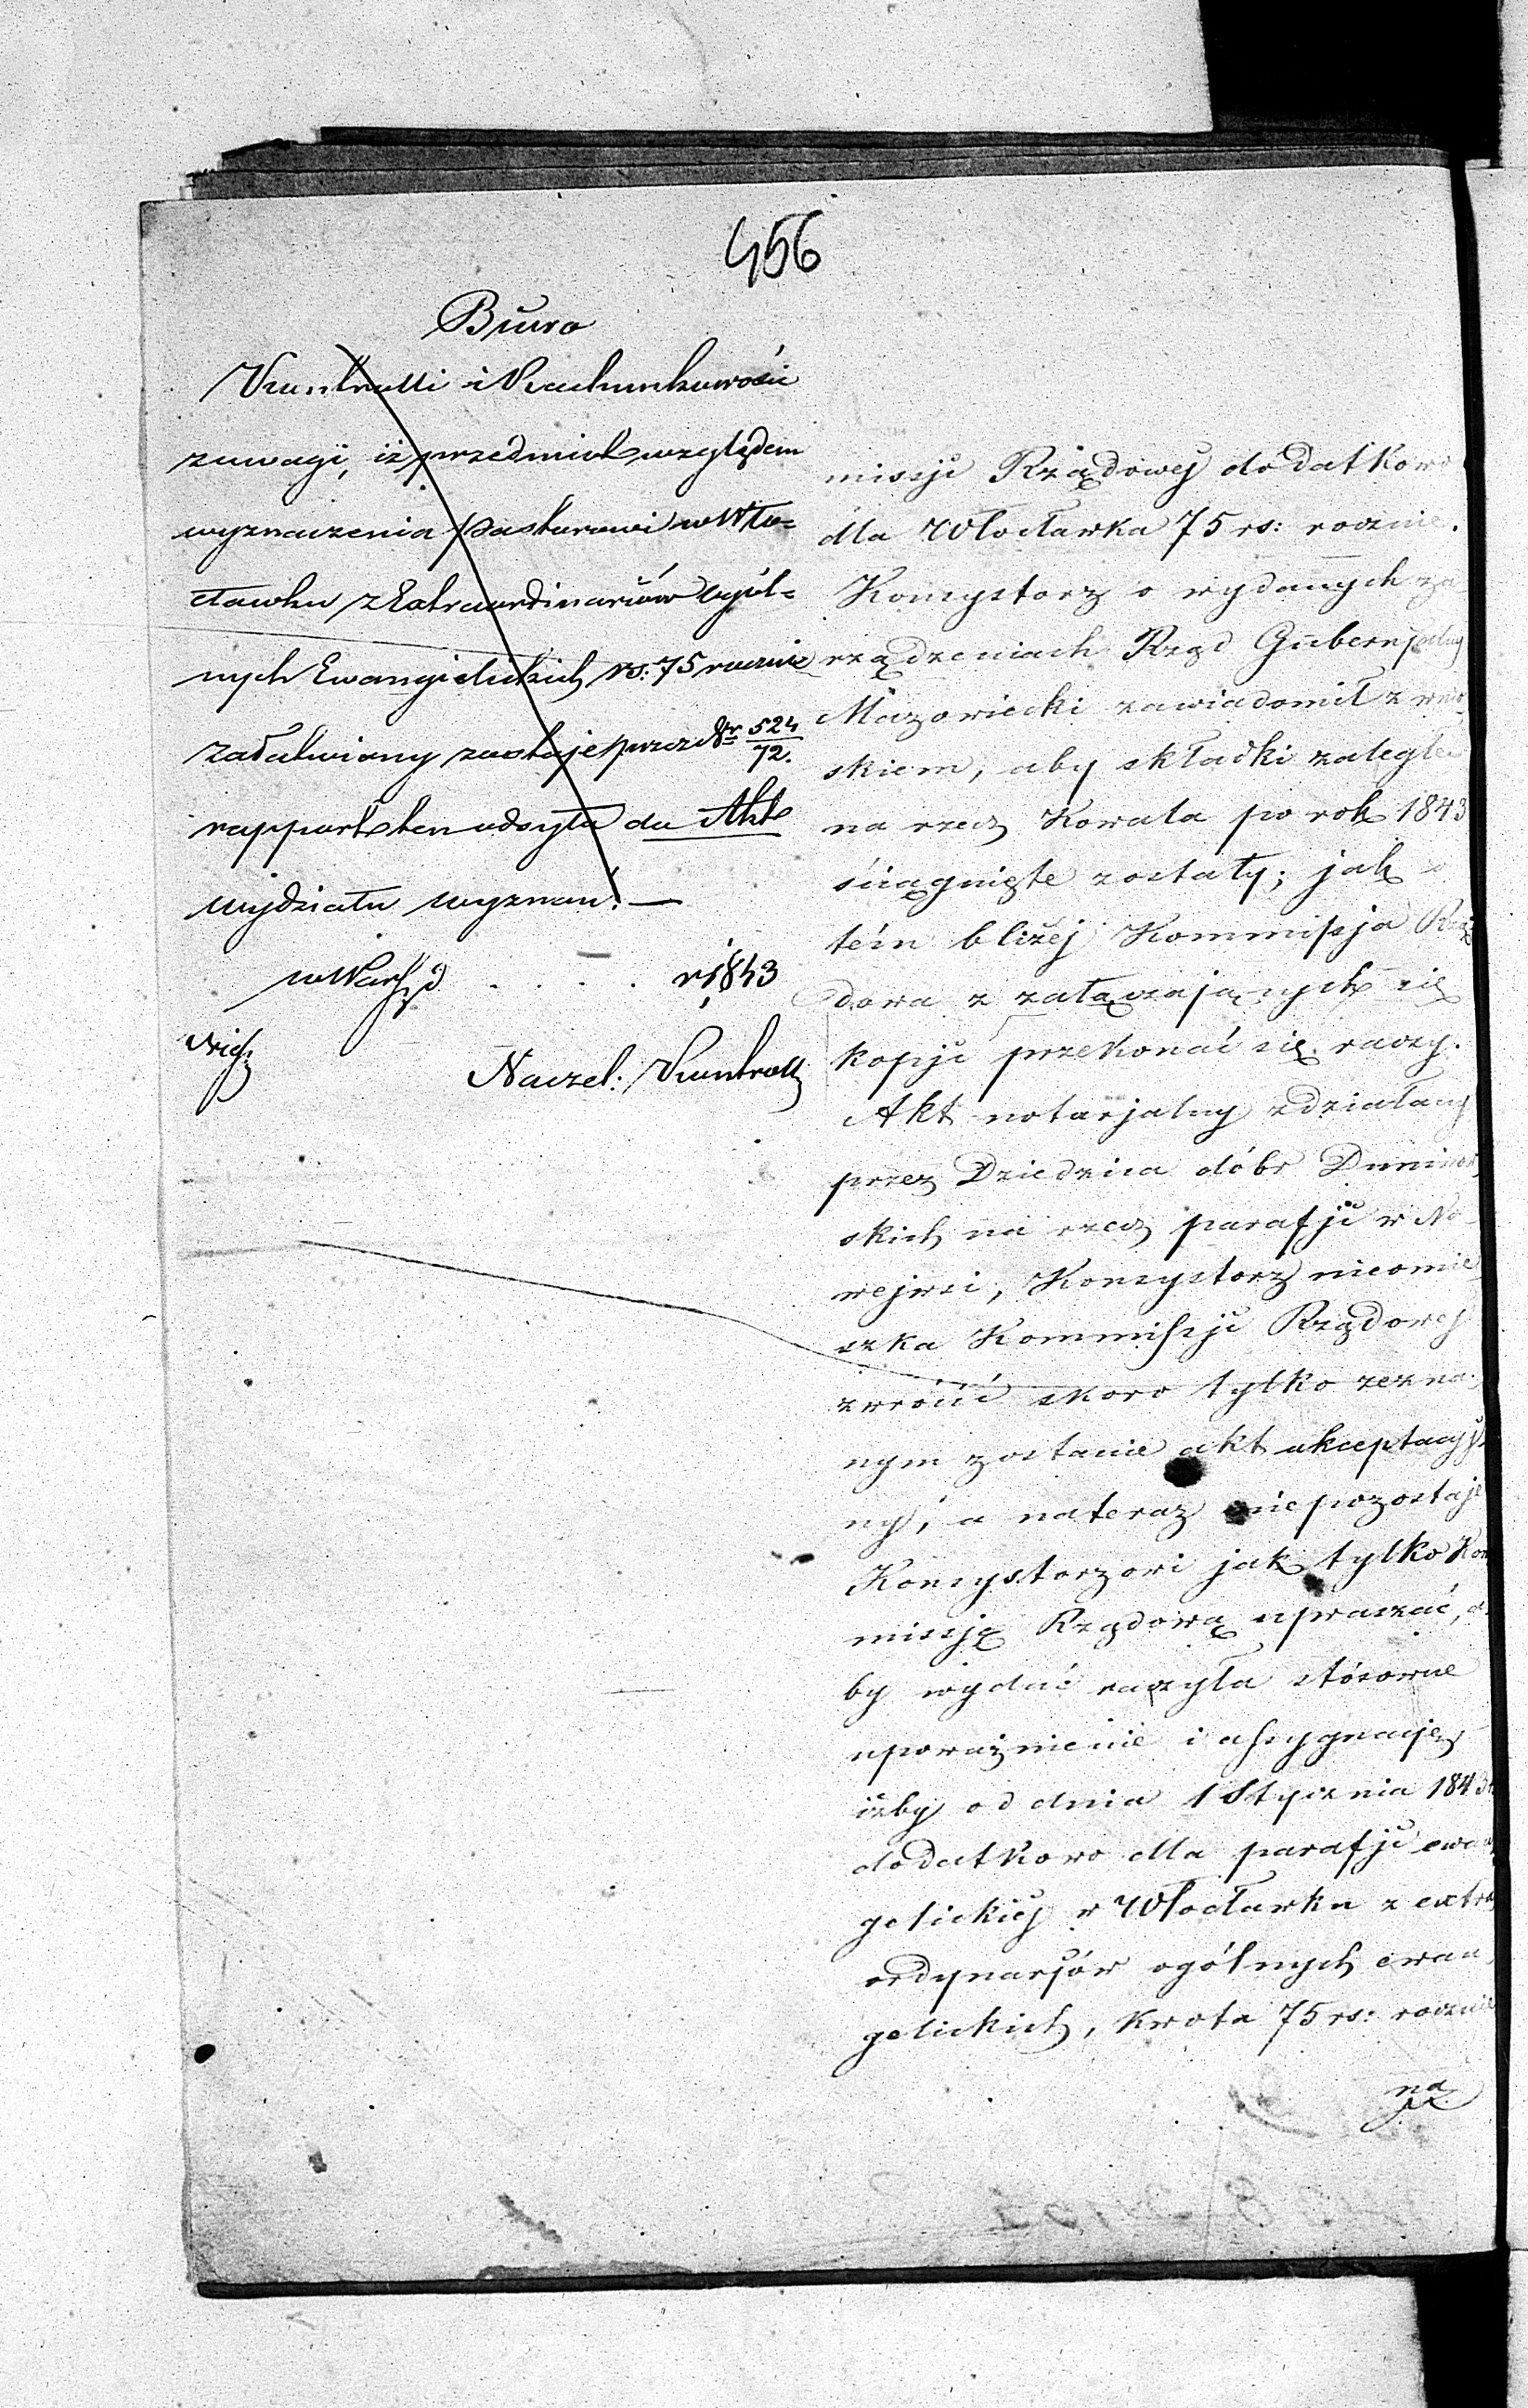 456
Biuro
Kontrolli i Rachunkowości
z uwagi, iż przedmiot względem
wyznaczenia Pastorowi w Wło=
cławku z Extraordinariów ogól=
nych Ewangielickich rs: 75 rocznie
załatwiony zostaje przez Nr 524/72.
rapport ten odsyła do Akt
Wydziału wyznań. —
w Warsz d . . . . r 1843
Naczel: Kontroll
missji Rządowej dodatkowo
dla Włocławka 75 rs: rocznie.
Konsystorz o wydanych za
rządzeniach Rząd Gubernjalny
Mazowiecki zawiadomił z wnio
skiem, aby składki zaległe
na rzecz Kowala po rok 1843
ściągnięte zostały; jak o
tém bliżej Kommissja Rzą
dowa z załączających się
kopji przekonać się raczy.
Akt notarjalny zdziałany
przez Dziedzica dóbr Duninow
skich na rzecz parafji w No
wejwsi, Konsystorz nieomie
szka Kommissji Rządowej
zwrócić skoro tylko zezna
nym zostanie akt akceptacyj
ny; a nateraz niepozostaje
Konsystorzowi jak tylko Kom
missję Rządową upraszać, a
by wydać raczyła stósowne
upoważnienie i assygnacje,
iżby od dnia 1 Stycznia 1843
dodatkowo dla parafji ewan
gelickiej w Włocławku z extra
ordynarjów ogólnych ewan
gelickich, kwota 75 rs: rocznie
na